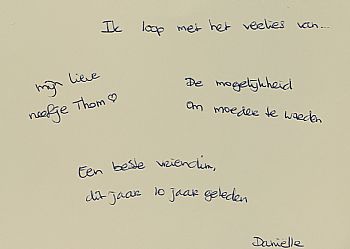 Ik loop met het verlies van...
mijn lieve
neefje Thom ♡
De mogelijkheid
om moeder te worden
Een beste vriendin,
dit jaar 10 jaar geleden
Daniëlle